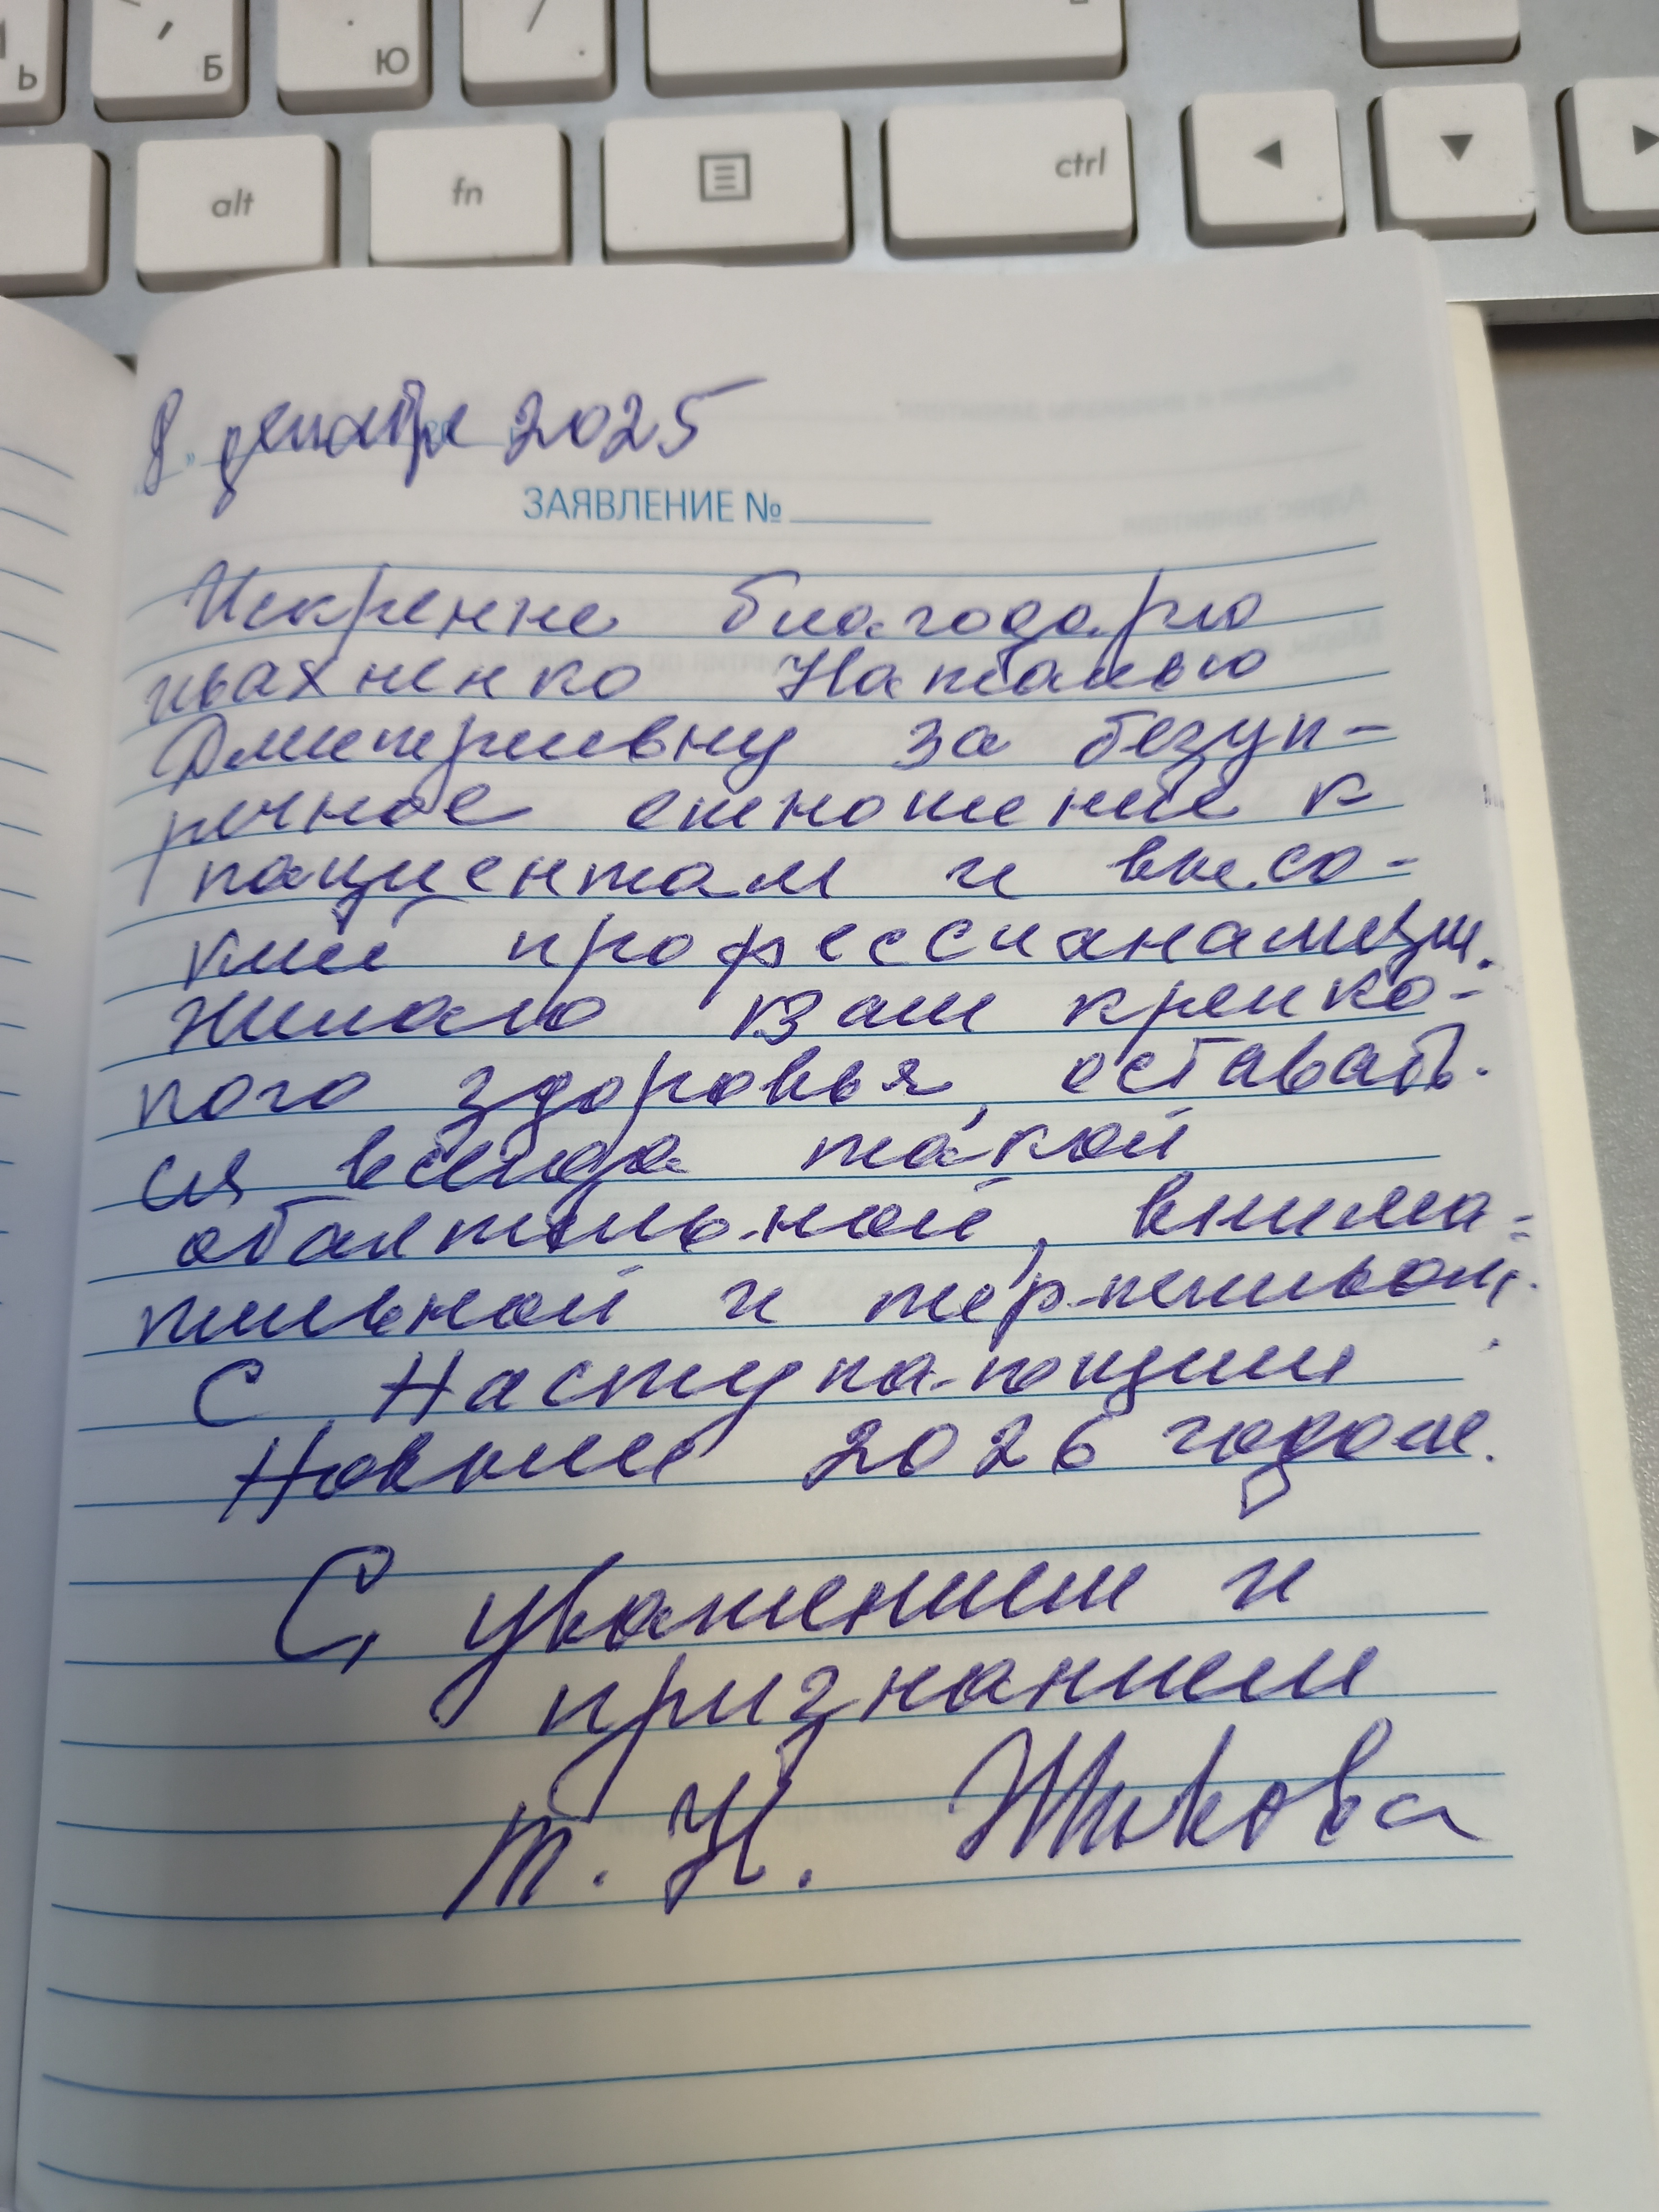 Ь
Б
Ю
alt
fn
ctrl
8 декабря 2025
ЗАЯВЛЕНИЕ №
Искренне благодарю
Ивахненко Наталью
Дмитриевну за безуп-
речное отношение к
пациентам и высо-
кий профессианализм.
Желаю Вам крепко-
го здоровья, оставать-
ся всегда такой
обаятельной, внима-
тельной и терпеливой.
С Наступающим
Новым 2026 годом.
С уважением и
признанием
Т. Н.